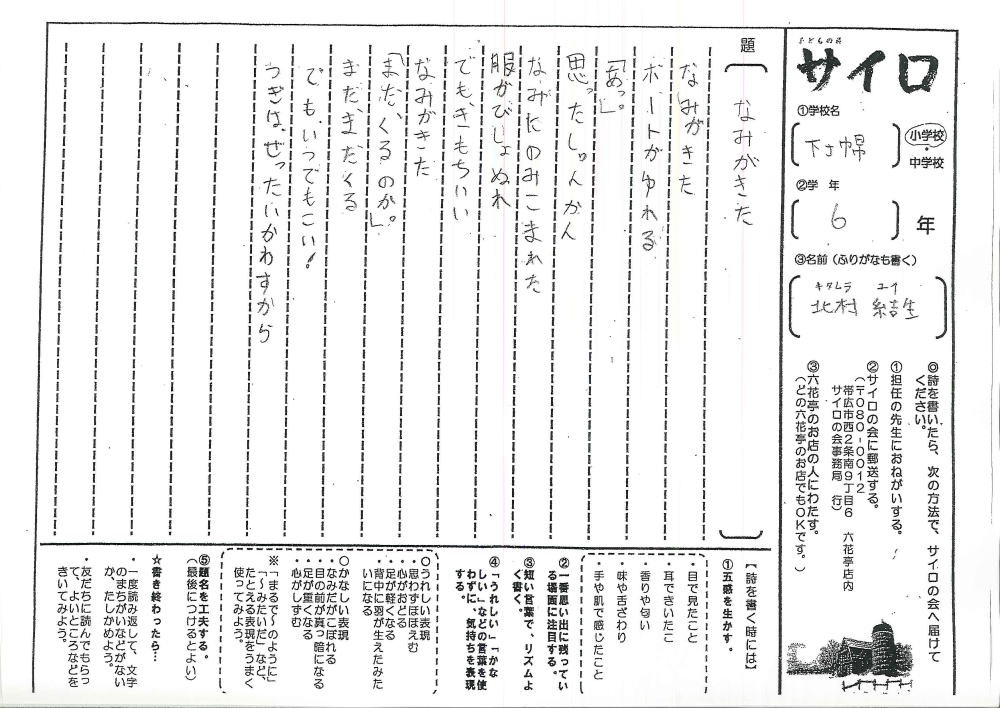 子どもの詩
サイロ
①学校名
下士幌
小学校
・
中学校
②学 年
6
年
③名前（ふりがなも書く）
キタムラ ユイ
北村 結生
◎詩を書いたら、次の方法で、サイロの会へ届けて
ください。
①担任の先生におねがいする。
②サイロの会に郵送する。
（〒080-0012
帯広市西2条南9丁目6 六花亭店内
サイロの会事務局 行）
③六花亭のお店の人にわたす。
（どの六花亭のお店でもOKです。）
題
なみがきた
なみがきた
ボートがゆれる
「あっ。」
思ったしゅんかん
なみにのみこまれた
服がびしょぬれ
でも、きもちいい
なみがきた
「また、くるのか。」
まだ、まだ、くる
でも、いつでもこい！
つぎは、ぜったいかわすから
【詩を書く時には】
①五感を生かす。
・目で見たこと
・耳できいたこ
・香りや匂い
・味や舌ざわり
・手や肌で感じたこと
②一番思い出に残ってい
る場面に注目する。
③短い言葉で、リズムよ
く書く。
④「うれしい」「かな
しい」などの言葉を使
わずに、気持ちを表現
する。
○うれしい表現
・思わずほほえむ
・心がおどる
・足が軽くなる
・背中に羽が生えたみた
いになる
○かなしい表現
・なみだがこぼれる
・目の前が真っ暗になる
・足が重くなる
・心がしずむ
※「まるで～のように」
「～みたいだ」など、
たとえる表現をうまく
使ってみよう。
⑤題名を工夫する。
（最後につけるとよい）
☆書き終わったら…
・一度読み返して、文字
のまちがいなどがない
か、たしかめよう。
・友だちに読んでもらっ
て、よいところなどを
きいてみよう。